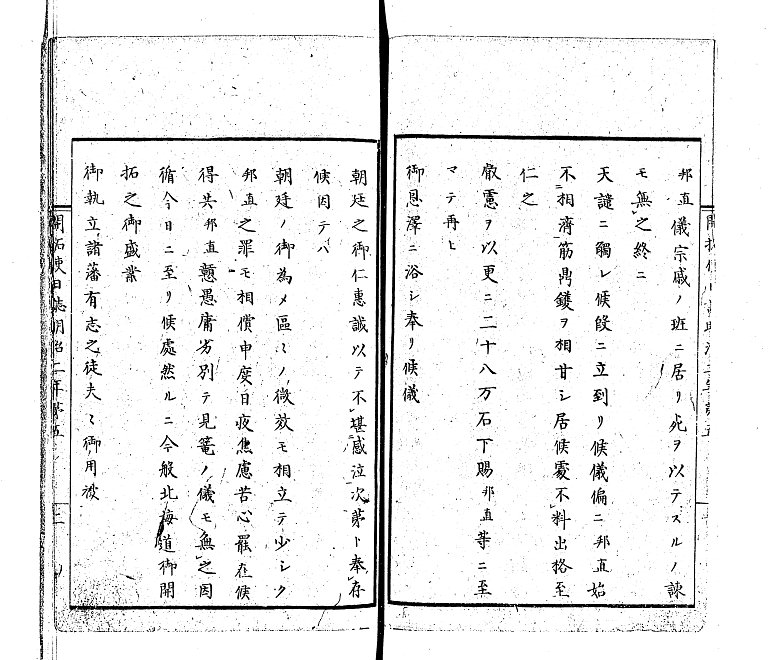 邦直儀宗戚ノ班ニ居リ死ヲ以テスルノ諌
モ無之終ニ
天譴ニ觸レ候段ニ立到リ候儀偏ニ邦直始
不相濟筋鼎鑊ヲ相甘シ居候處不料出格至
仁之
叡慮ヲ以更ニ二十八万石下賜邦直等ニ至
マテ再ヒ
御恩澤ニ浴シ奉リ候儀
朝廷之御仁惠誠以テ不堪感泣次第ト奉存
候因テハ
朝廷ノ御為メ區々ノ微效モ相立テ少シク
邦直之罪モ相償申度日夜焦慮苦心罷在候
得共邦直戇愚庸劣別テ見篭ノ儀モ無之因
循今日ニ至リ候處然ルニ今般北海道御開
拓之御盛業
御執立諸藩有志之徒夫々御用被
開拓使日誌明治二年第五